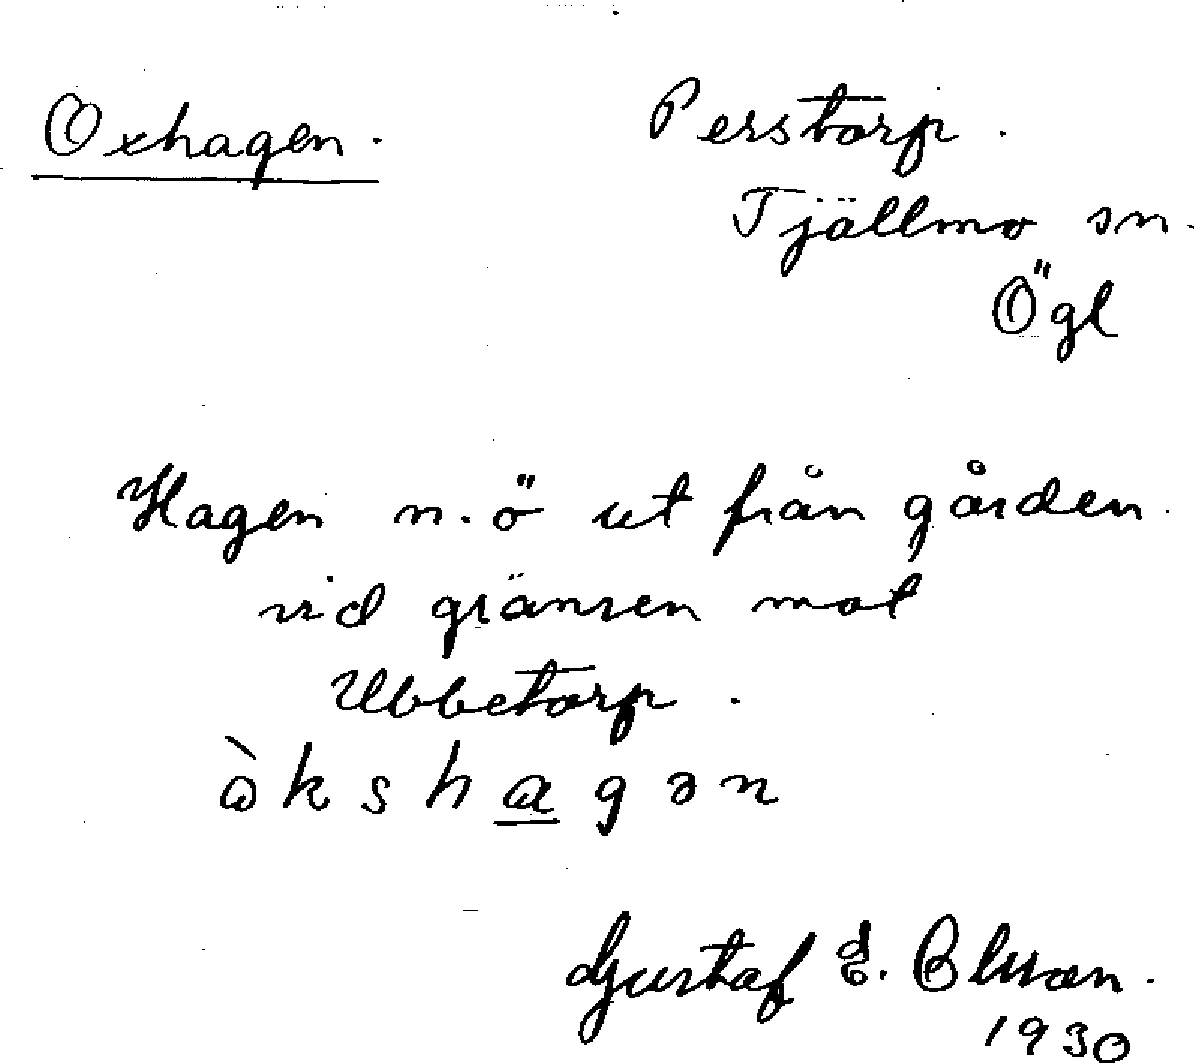 Oxhagen.
Perstorp.
Tjällmo sn.
Ögl
Hagen n.ö ut från gården
vid gränsen mot
Ubbetorp.
Gustaf E.
1930